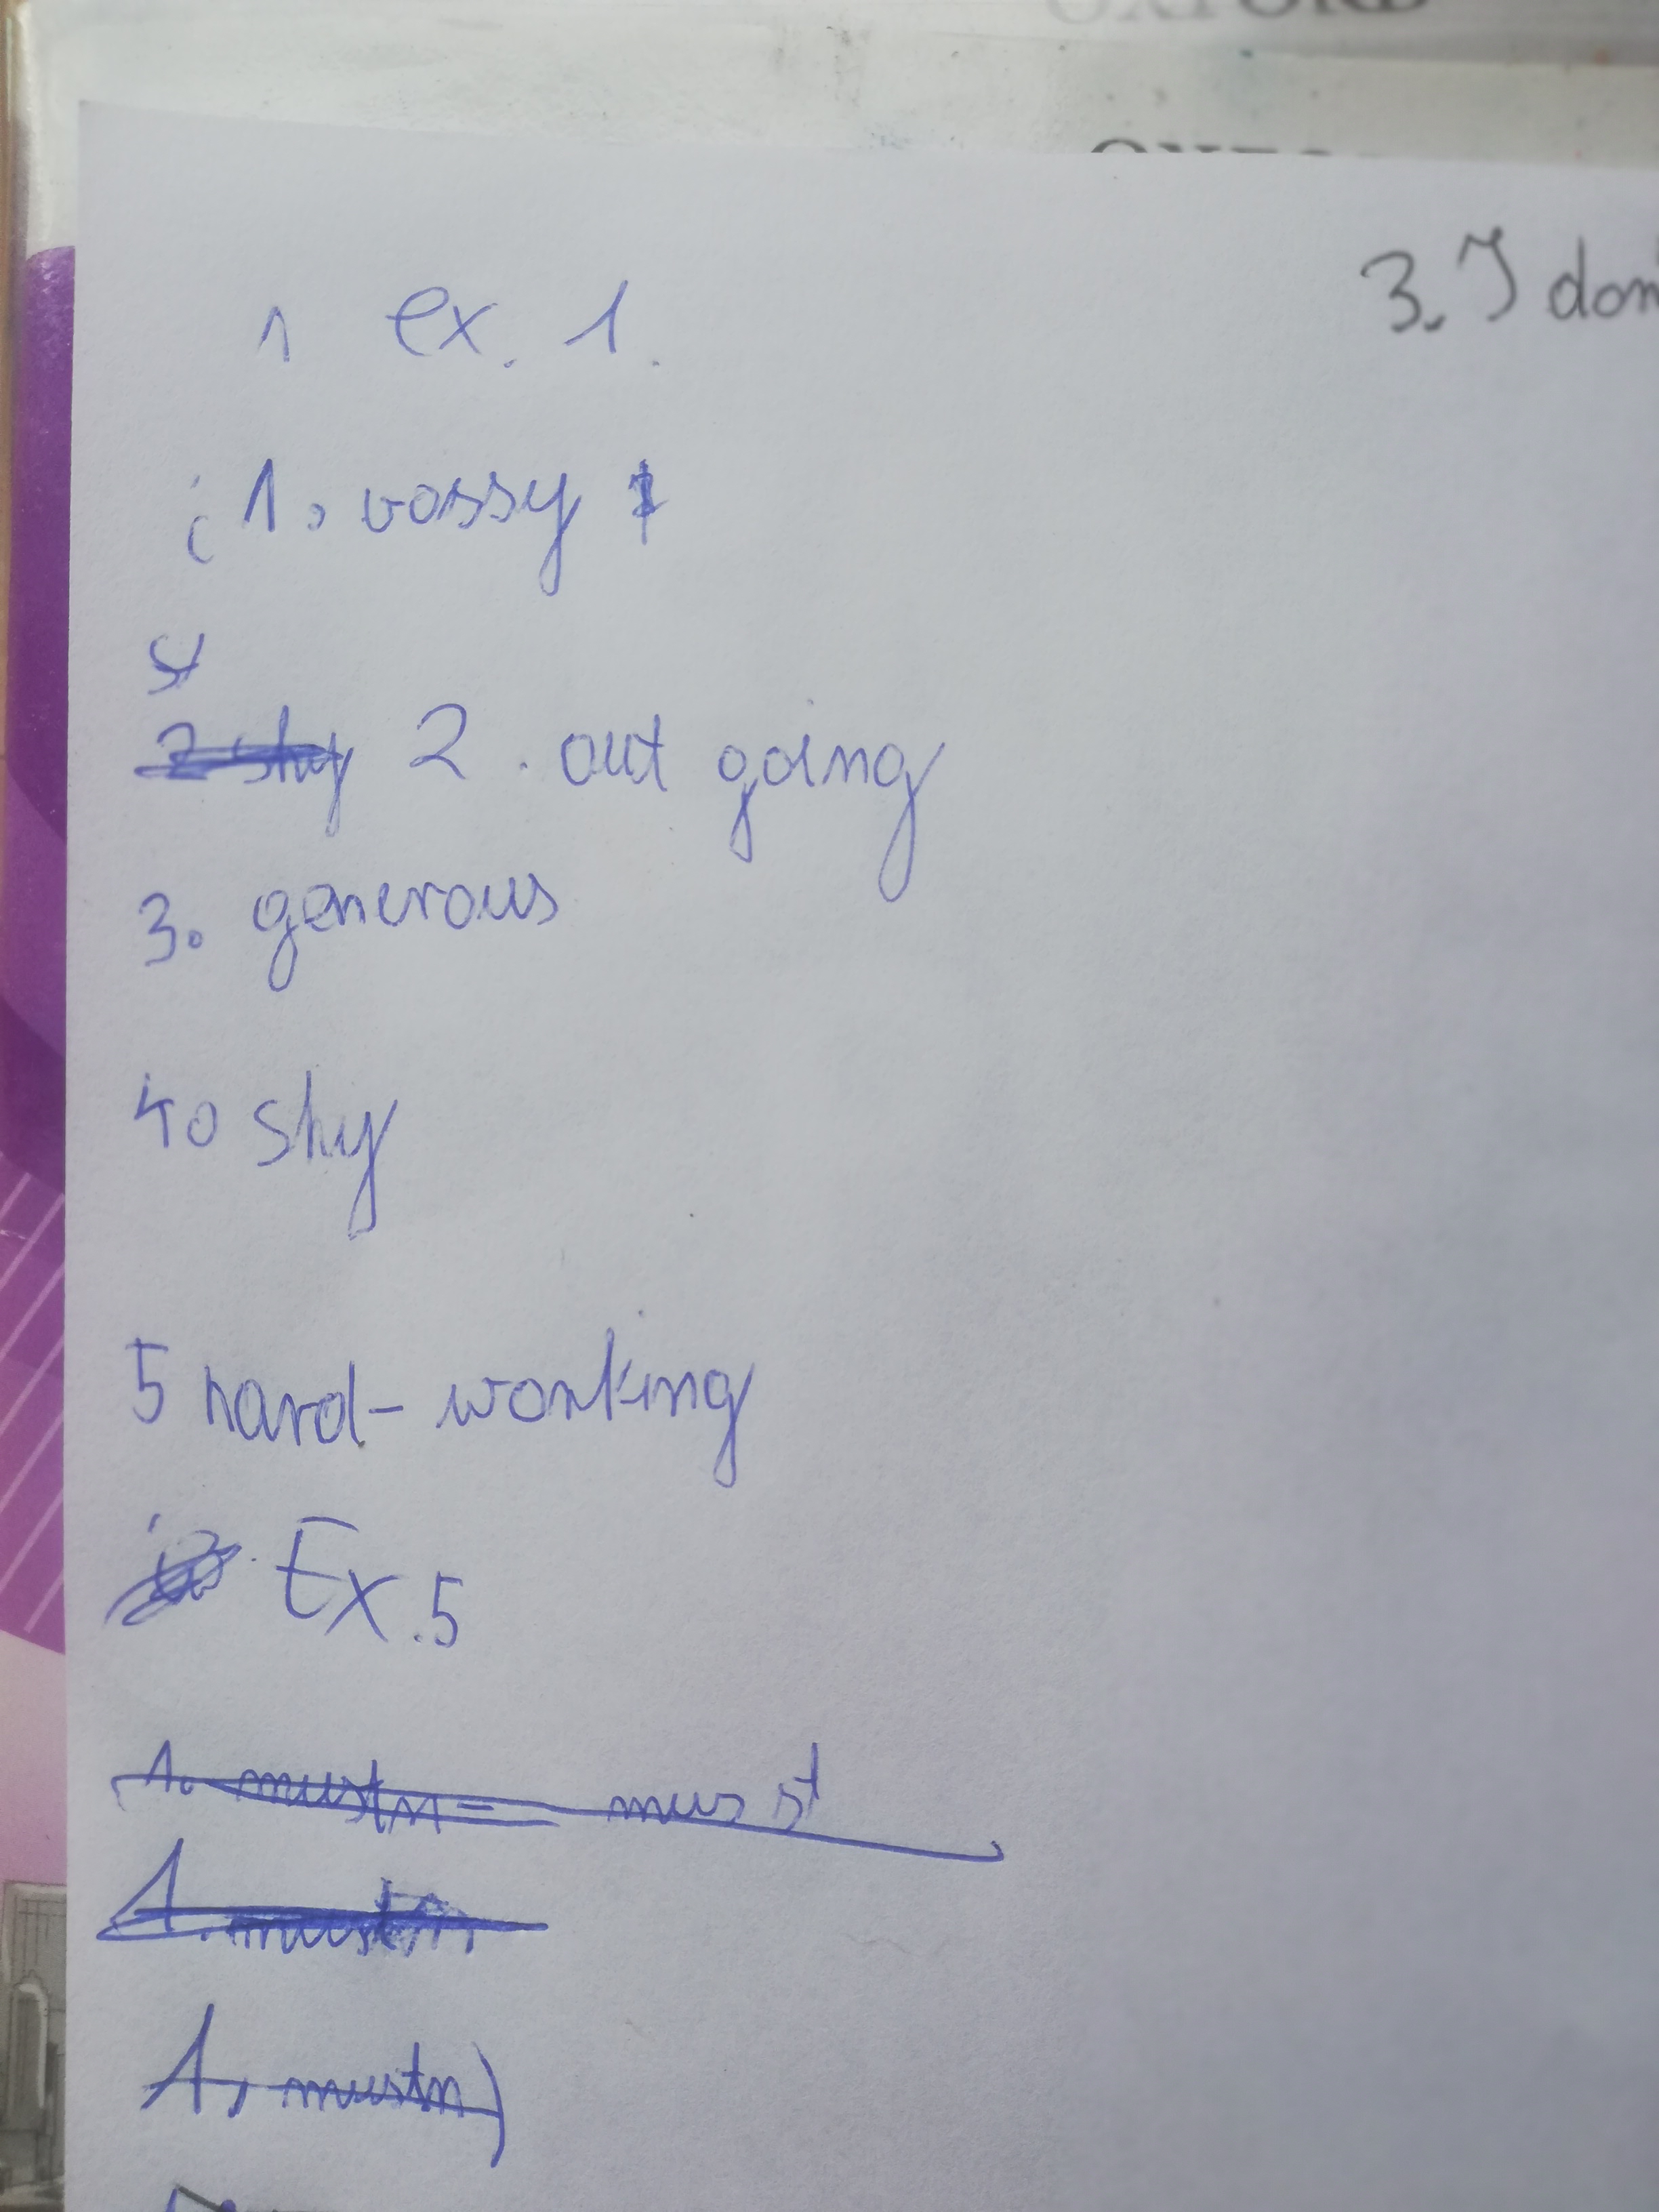 OXFORD
3. I don'
1 ex. 1.
1. vossy
2 shy 2. out going
3. generous
4. shy
5 hard-working
Ex. 5
1. mustn = must
1. mustn
1, mustn